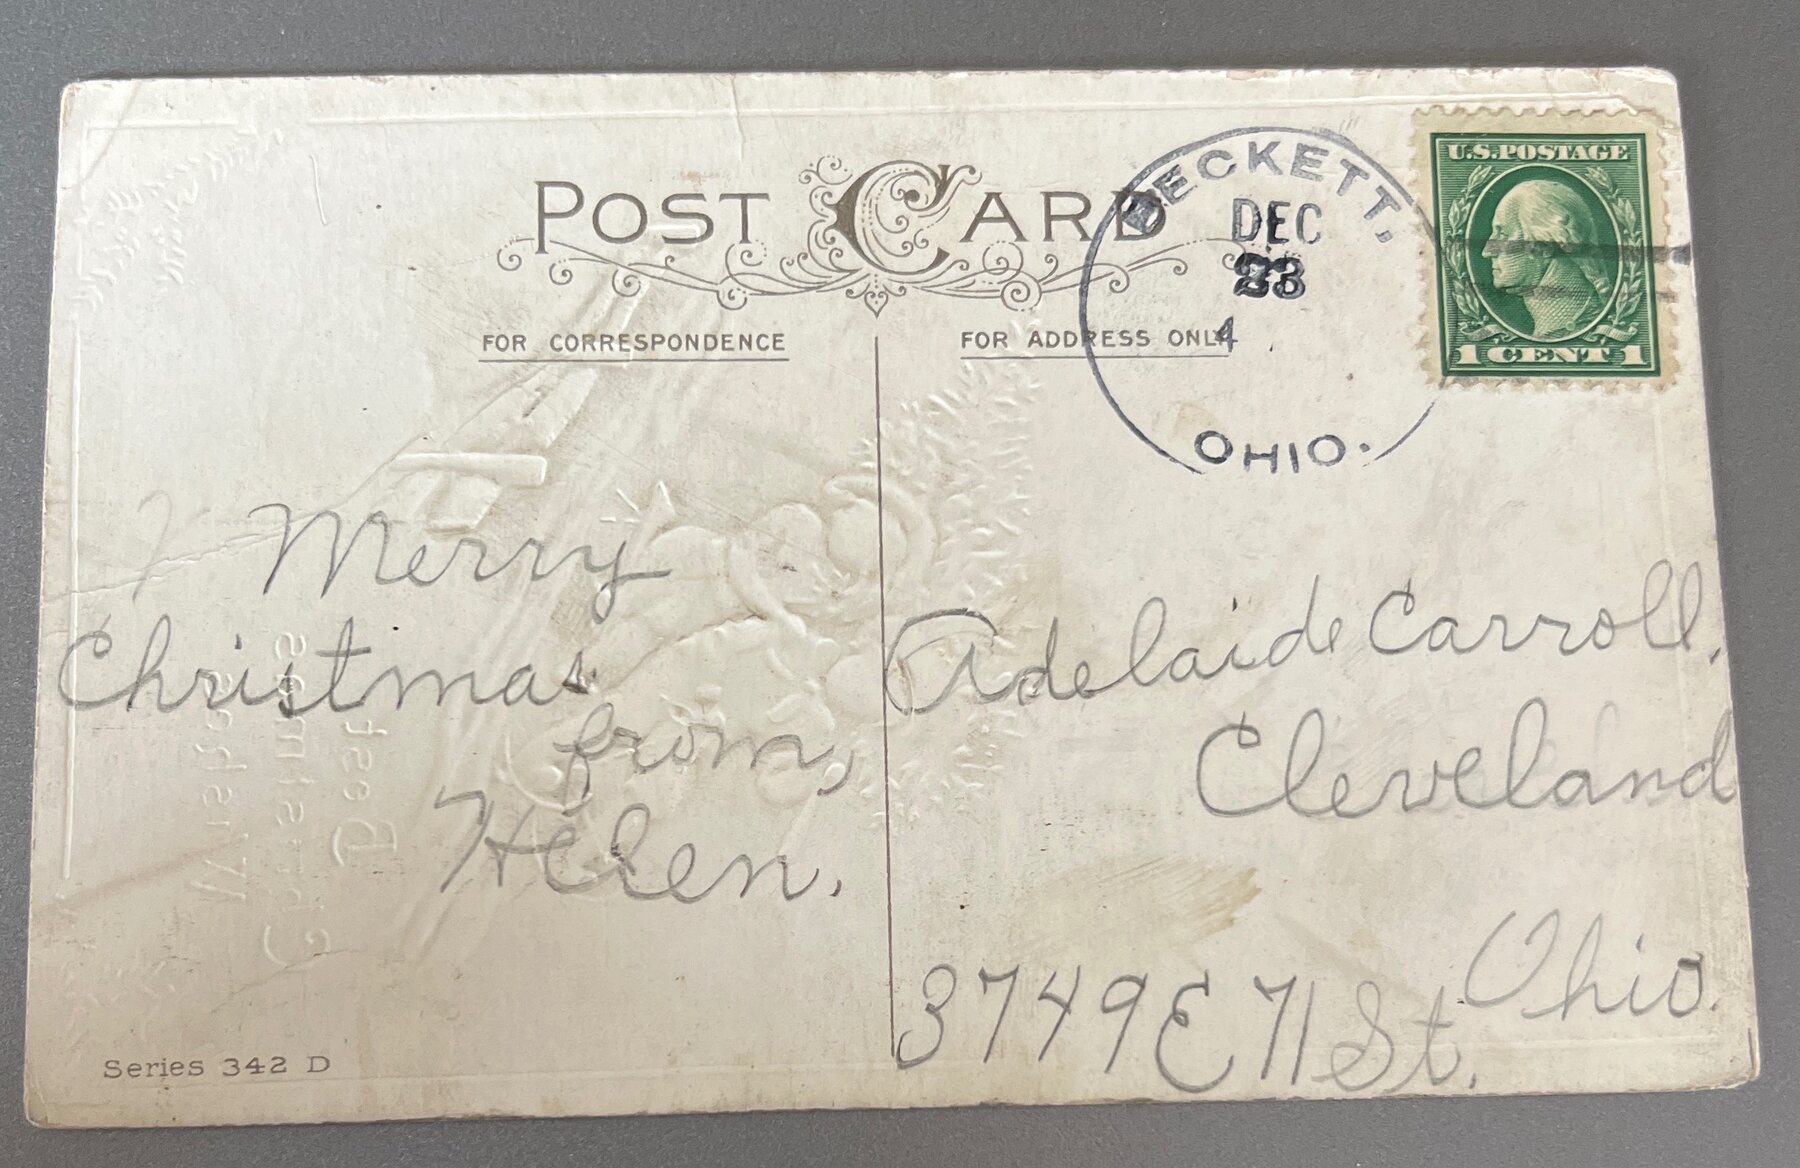 POST CARD
FOR CORRESPONDENCE
FOR ADDRESS ONLY
BECKETT,
DEC
23
4
OHIO.
U.S.POSTAGE
1 CENT 1
Merry
Christmas
from,
Helen.
Adelaide Carroll,
Cleveland
Ohio.
3749 E 71 St.
Series 342 D
Best
Christmas
Wishes